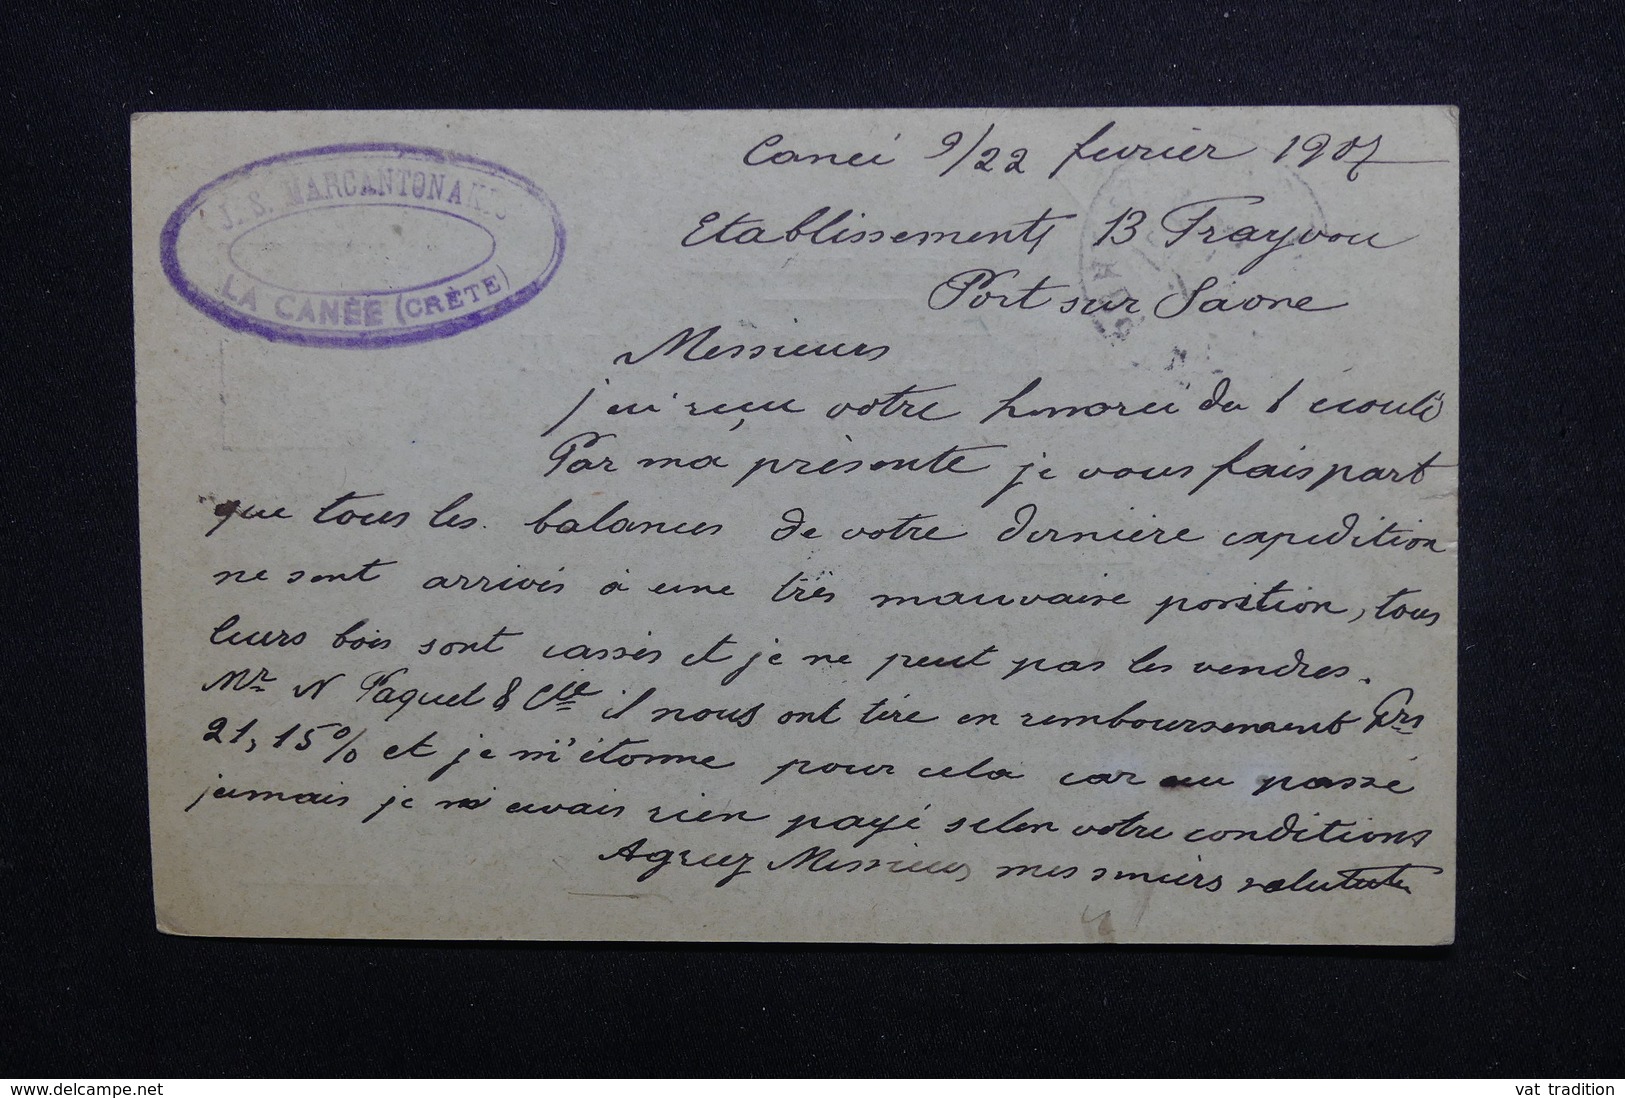 J. S. MARCANTONAKIS
LA CANÉE (CRÈTE)
Canéi 9/22 fevrier 1907
Etablissements B Trayvou
Port sur Saone
Messieurs
j'ai reçu votre honoreé du 1 ecoulé
Par ma présente je vous fais part
que tous les balances de votre dernière expedition
ne sont arrivés à une très mauvaise position, tous
leurs bois sont cassés et je ne peut pas les vendres.
Mr N Paquet & Cie il nous ont tire en remboursement Frs
21,15% et je m'étonne pour cela car au passé
jamais je n'avais rien payé selon votre conditions
Agreez Messieurs mes sinciers
delcampe.net
vat tradition